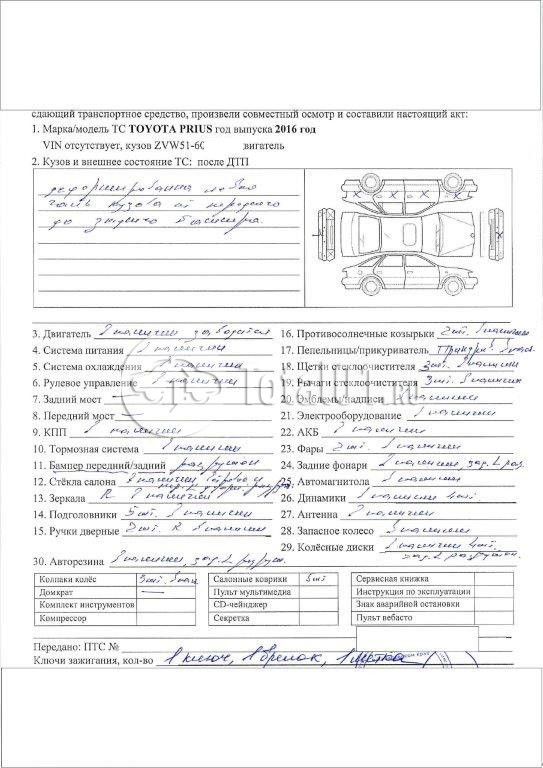 сдающий транспортное средство, произвели совместный осмотр и составили настоящий акт:
1. Марка/модель ТС TOYOTA PRIUS год выпуска 2016 год
VIN отсутствует, кузов ZVW51-60 вигатель
2. Кузов и внешнее состояние ТС: после ДТП
деформирована левая
часть кузова от переднего
до заднего бампера.
3. Двигатель В наличии заводится
4. Система питания В наличии
5. Система охлаждения В наличии
6. Рулевое управление В наличии
7. Задний мост —
8. Передний мост —
9. КПП В наличии
10. Тормозная система В наличии
11. Бампер передний/задний разрушен
12. Стёкла салона В наличии
13. Зеркала R В наличии
14. Подголовники 5шт. В наличии
15. Ручки дверные 2шт. R В наличии
16. Противосолнечные козырьки 2шт. В наличии
17. Пепельницы/прикуриватель
18. Щетки стеклоочистителя 3шт. В наличии
19. Рычаги стеклоочистителя 3шт. В наличии
20. Эмблемы/надписи В наличии
21. Электрооборудование В наличии
22. АКБ В наличии
23. Фары 2шт. В наличии
24. Задние фонари В наличии, зад. L раз.
25. Автомагнитола В наличии
26. Динамики В наличии 4шт.
27. Антенна В наличии
28. Запасное колесо В наличии
29. Колёсные диски В наличии 4шт.
зад. L разрушен
30. Авторезина В наличии, зад. L разруш.
Колпаки колёс 3шт. В нал
Домкрат —
Комплект инструментов
Компрессор
Салонные коврики 5шт
Пульт мультимедиа
CD-чейнджер
Секретка
Сервисная книжка
Инструкция по эксплуатации
Знак аварийной остановки
Пульт вебасто
Передано: ПТС №
Ключи зажигания, кол-во 1 ключ, 1 брелок, 1 метка